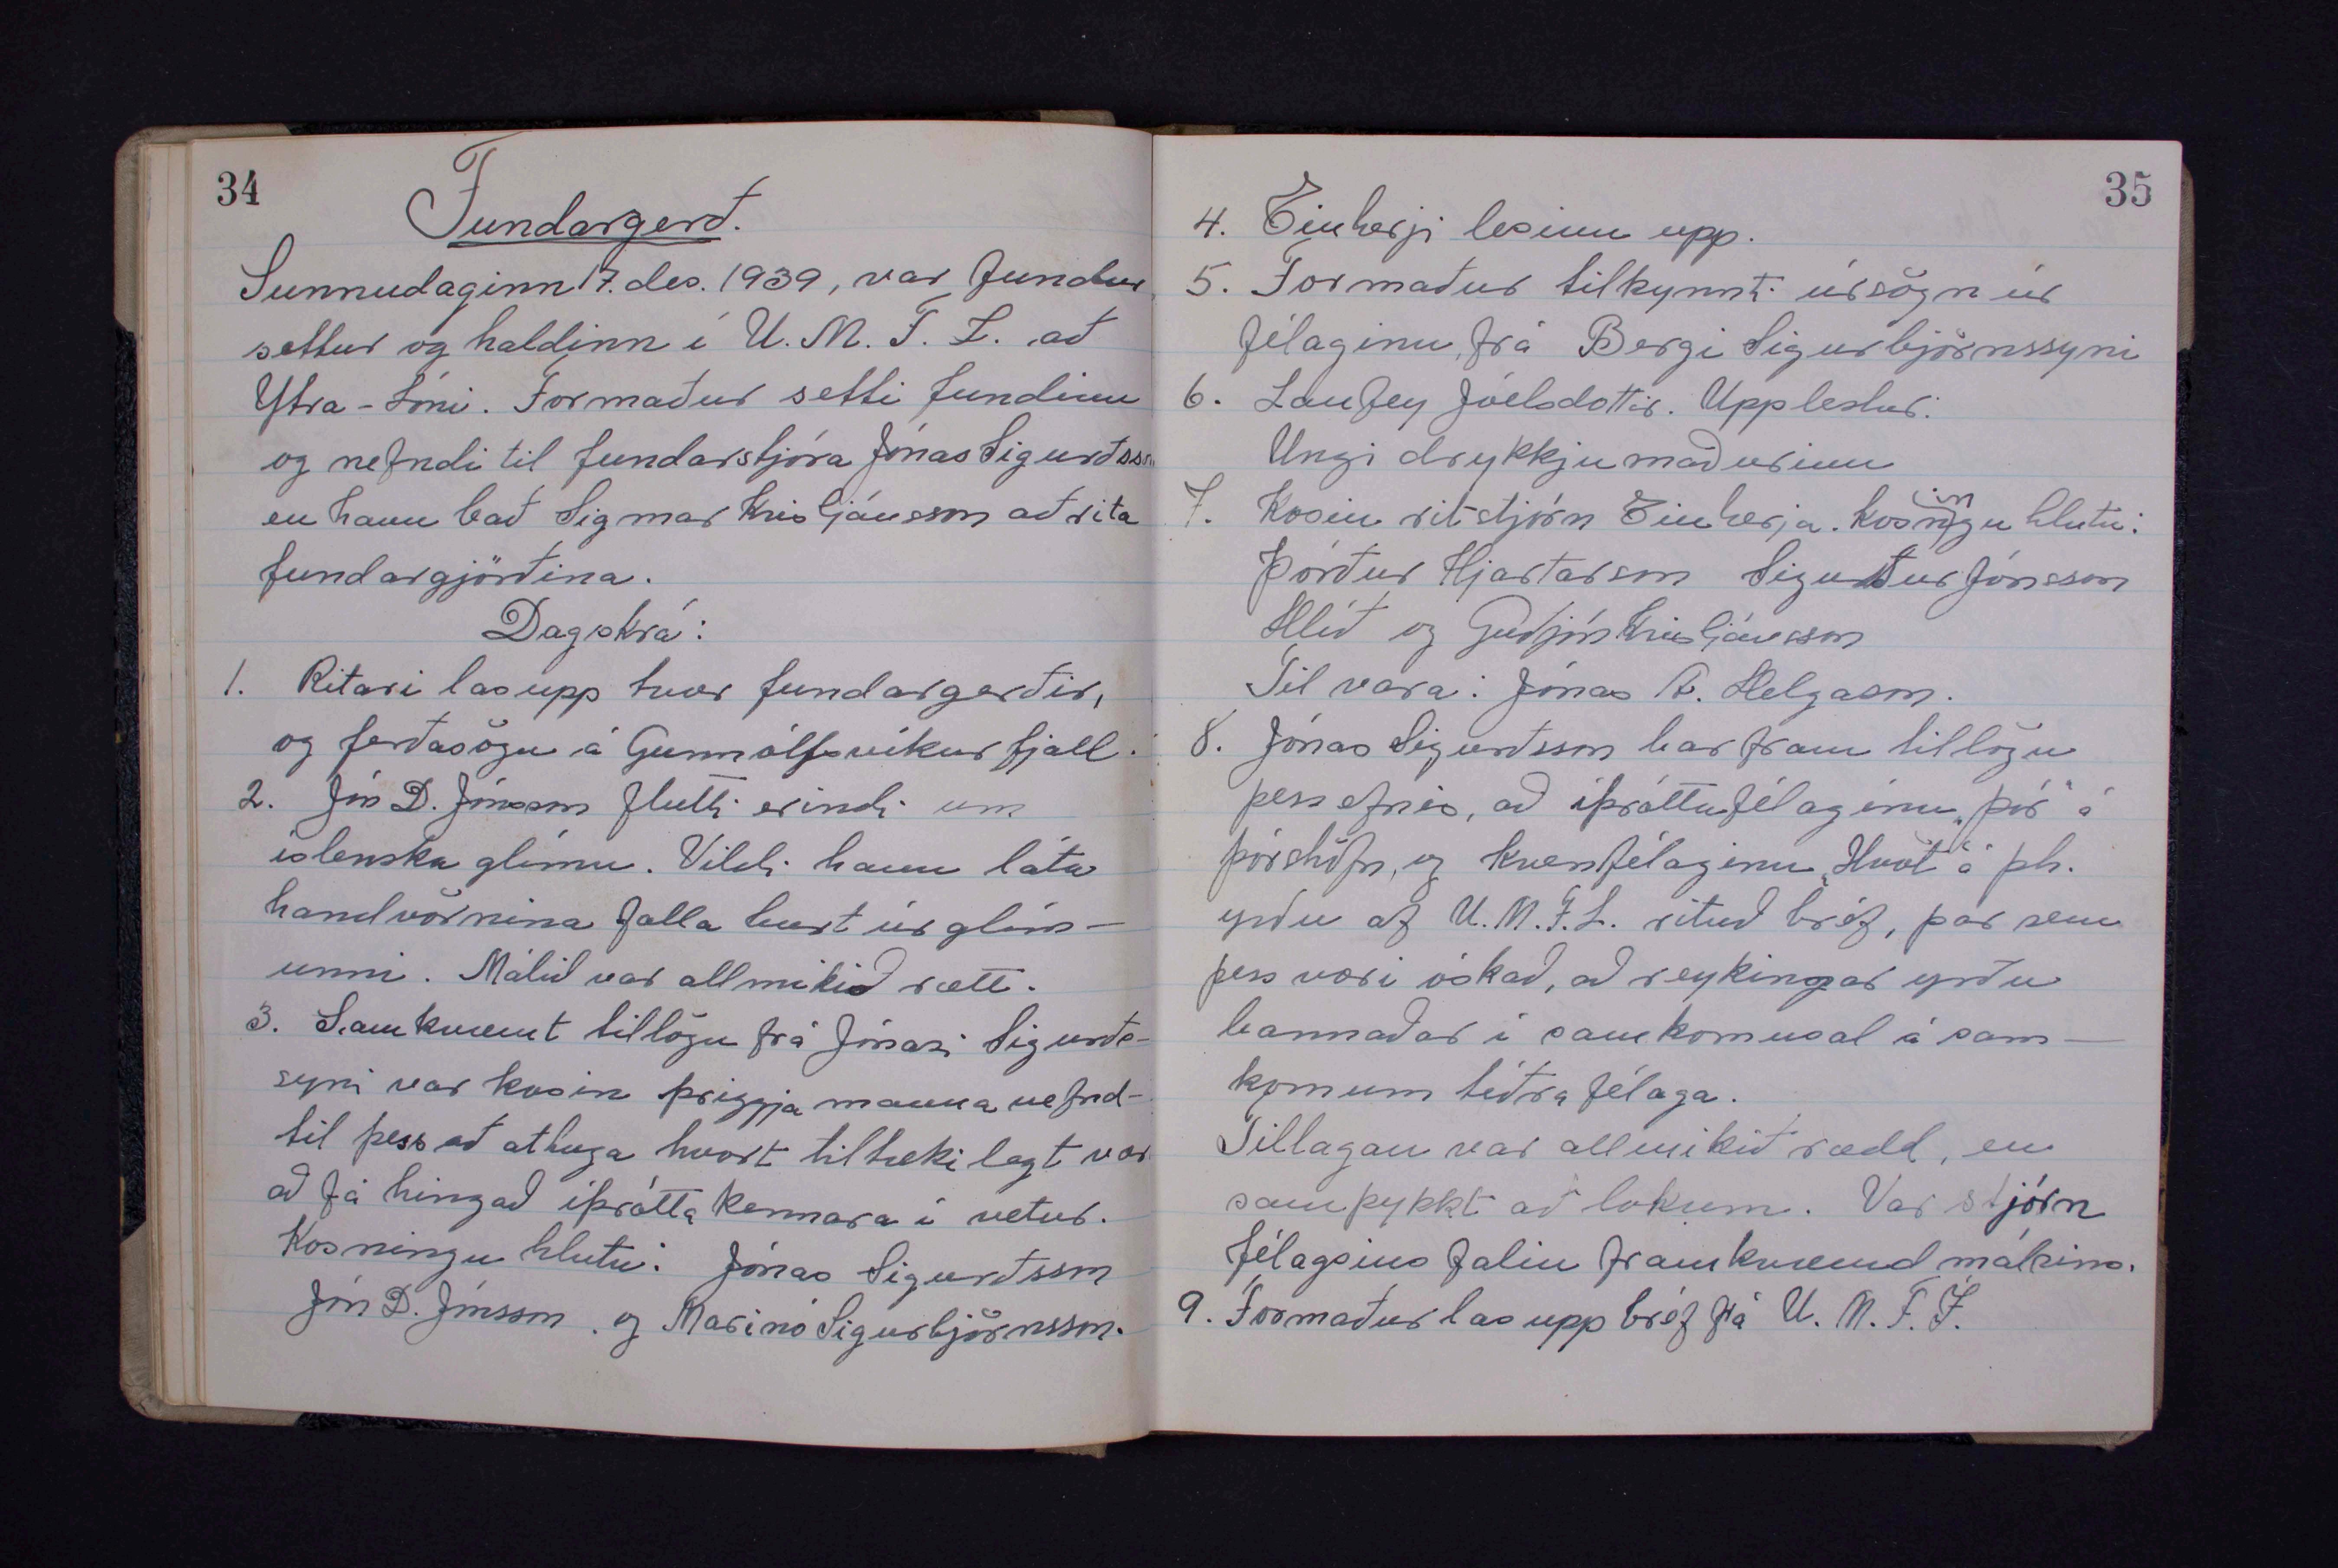 34
Fundargerð.
Sunnudaginn 17. des. 1939, var fundur
settur og haldinn í U. M. F. L. að
Ytra-Lóni. Formaður setti fundinn
og nefndi til fundarstjóra Jónas Sigurðsson
en hann bað Sigmar Kristjánsson að rita
fundargjörðina.
Dagskrá:
1. Ritari las upp tvær fundargerðir,
og ferðasögu á Gunnólfsvíkurfjall.
2. Jón D. Jónsson flutti erindi um
íslenska glímu. Vildi hann láta
handvörnina falla burt úr glím-
unni. Málið var allmikið rætt.
3. Samkvæmt tillögu frá Jónasi Sigurðs-
syni var kosin þriggja manna nefnd-
til þess að athuga hvort tiltækilegt vær
að fá hingað íþróttakennara í vetur.
Kosningu hlutu: Jónas Sigurðsson
Jón D. Jónsson. og Marinó Sigurbjörnsson.
35
4. Einherji lesinn upp.
5. Formaður tilkynnti úrsögn úr
félaginu, frá Bergi Sigurbjörnssyni
6. Laufey Jóelsdottir. Upplestur:
Ungi drykkjumaðurinn
7. Kosin ritstjórn Einherja. Kosningu hlutu:
Þórður Hjartarson Sigurður Jónsson
Hlíð og Guðjón Kristjánsson
Til vara: Jónas A. Helgason.
8. Jónas Sigurðsson bar fram tillögu
þess efnis, að íþróttafélaginu „Þór" á
Þórshöfn, og kvenfélaginu „Hvöt" á Þh.
yrðu af U. M. F. L. rituð bréf, þar sem
þess væri óskað, að reykingar yrðu
bannaðar í samkomusal á sam-
komum téðra félaga.
Tillagan var allmikið rædd, en
samþykkt að lokum. Var stjórn
félagsins falin framkvæmd málsins.
9. Formaður las upp bréf frá U. M. F. Í.